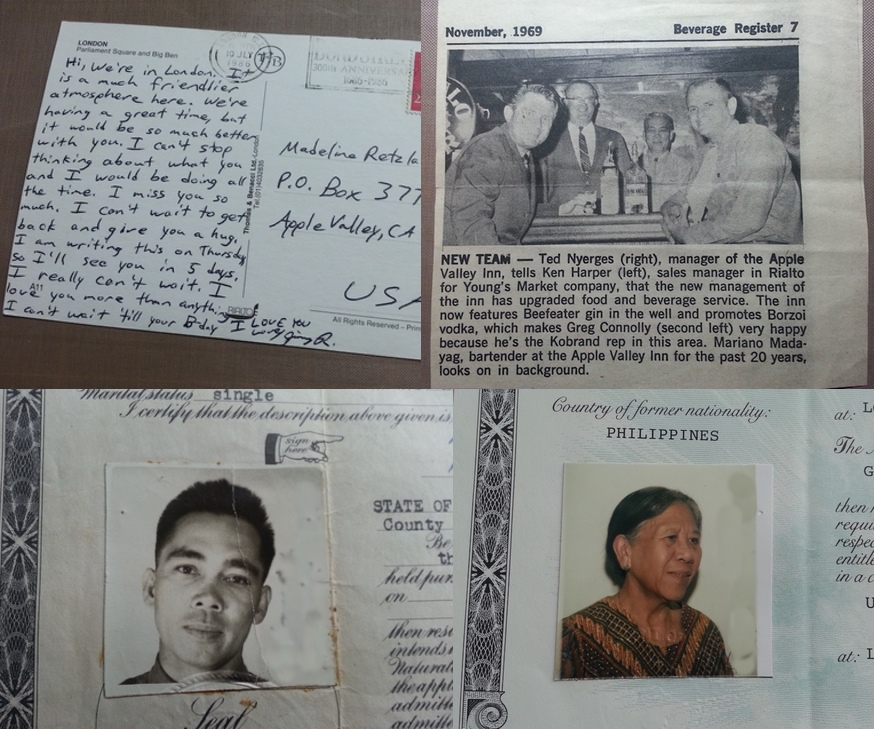 LONDON
Parliament Square and Big Ben
10 JLY
1986
300th ANNIVERSARY
1686-1986
Hi, We're in London. It
is a much friendlier
atmosphere here. We're
having a great time, but
it would be so much better
with you. I can't stop
thinking about what you
and I would be doing all
the time. I miss you so
much. I can't wait to get
back and give you a hug.
I am writing this on Thursday
so I'll see you in 5 days.
I really can't wait. I
love you more than anything.
I can't wait 'till your B-day I LOVE YOU
Thomas & Benacci Ltd. London
Tel.(01)4032835
Madeline Retzla
P.O. Box 377
Apple Valley, CA
USA
All Rights Reserved – Prin
November, 1969
Beverage Register 7
NEW TEAM — Ted Nyerges (right), manager of the Apple
Valley Inn, tells Ken Harper (left), sales manager in Rialto
for Young's Market company, that the new management of
the inn has upgraded food and beverage service. The inn
now features Beefeater gin in the well and promotes Borzoi
vodka, which makes Greg Connolly (second left) very happy
because he's the Kobrand rep in this area. Mariano Mada-
yag, bartender at the Apple Valley Inn for the past 20 years,
looks on in background.
Marital status single
I certify that the description above given is
sign
here
STATE OF
County
Be
th
held pur
on
then resi
intends
Natural
the appl
admitte
admitte
Seal
Country of former nationality:
PHILIPPINES
at: L
The A
G
then r
requi
respec
entitle
in a c
U
at: L